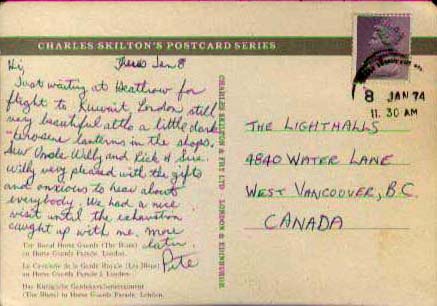 CHARLES SKILTON'S POSTCARD SERIES
Hi, Jan 8
Just waiting at Heathrow for
flight to Kuwait. London still
very beautiful altho a little dark
- kerosene lanterns in the shops.
Saw Uncle Willy and Rick & Sue.
Willy very pleased with the gifts
and anxious to hear about
everybody. We had a nice
visit until the exhaustion
caught up with me. More
later.
Pete
The Royal Horse Guards (The Blues)
on Horse Guards Parade, London.
La Cavalerie de la Garde Royale (Les Bleus)
on Horse Guards Parade à Londres.
Das Königliche Gardekavallerieregiment
(The Blues) in Horse Guards Parade, London.
CHARLES SKILTON & FRY LTD LONDON & EDINBURGH
8 JAN 74
11. 30 AM
THE LIGHTHALLS
4840 WATER LANE
WEST VANCOUVER, B.C.
CANADA